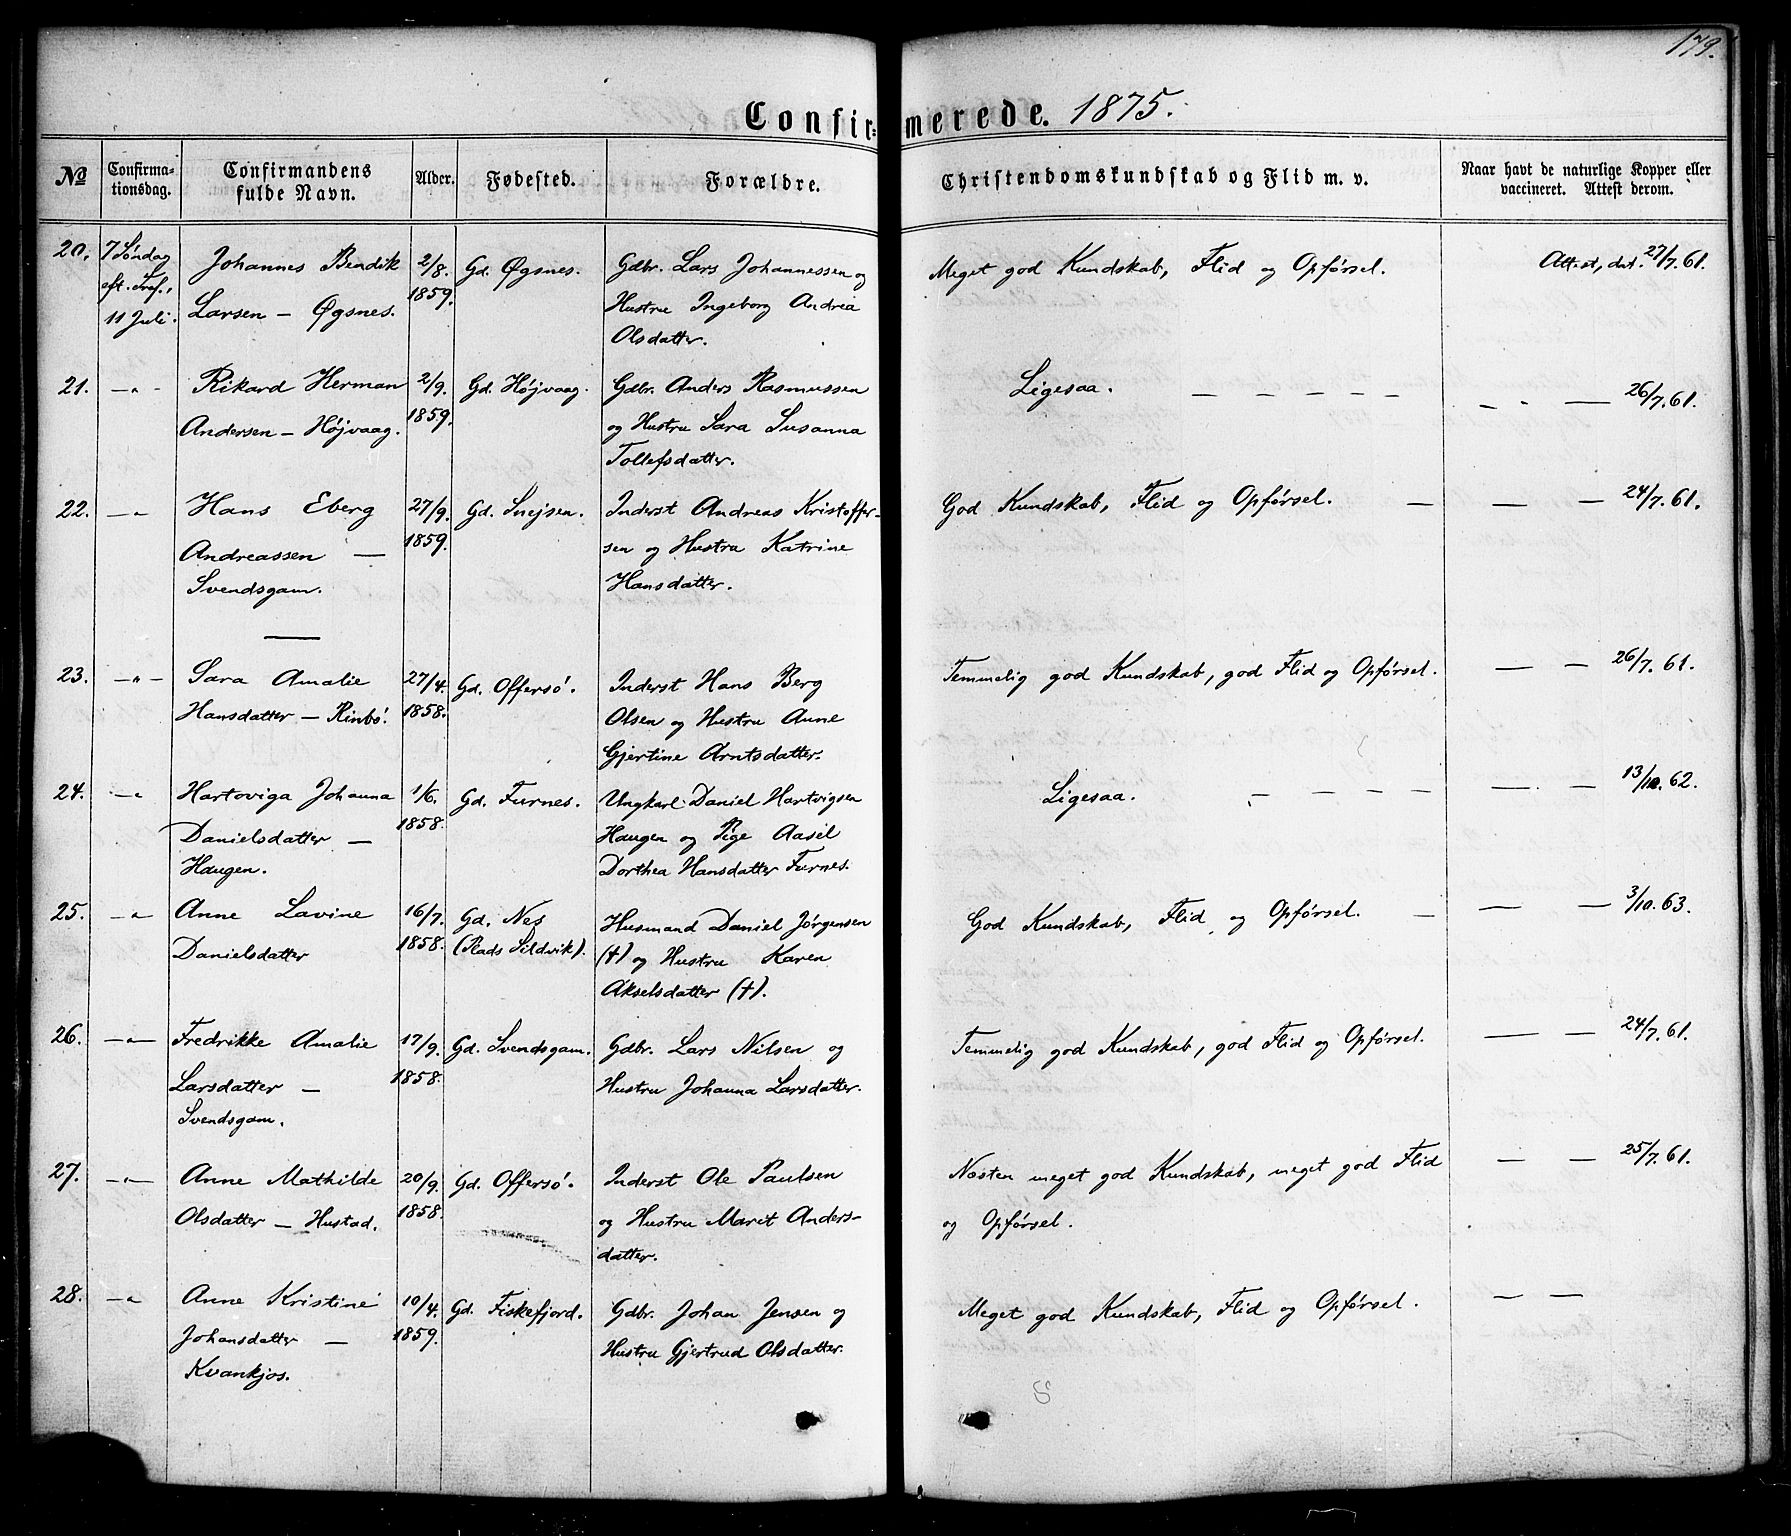 179.
Confirmerede. 1875.
No
Confirma-
tionsdag.
Confirmandens
fulde Navn.
Alder.
Fødested.
Forældre.
Christendomskundskab og Flid m. v.
Naar havt de naturlige Kopper eller
vaccineret. Attest derom.
20. 7 Søndag Johannes Bendik 2/8. Gd. Øgsnes. Gdbr. Lars Johannessen og Meget god Kundskab, Flid og Opførsel. Attest, dat. 27/7.61.
eft. Tref., Larsen — Øgsnes. 1859. Hustru Ingeborg Andrea
11 Juli. Olsdatter.
21. —"- Rikard Herman 2/9. Gd. Højvaag. Gdbr. Anders Rasmussen Ligesaa. — — — — — — " — 26/7.61.
Andersen — Højvaag. 1859. og Hustru Sara Susanna
Tollefsdatter.
22. —"- Hans Eberg 27/9. Gd. Snejsen. Inderst Andreas Kristoffer- God Kundskab, Flid og Opførsel. — — — 24/7.61.
Andreassen — 1859. sen og Hustru Katrine
Svendsgam. Hansdatter.
23. —"— Sara Amalie 27/4. Gd. Offersö. Inderst Hans Berg Temmelig god Kundskab, god Flid og Opførsel. — — 26/7.61.
Hansdatter — Rinbö. 1858. Olsen og Hustru Anne
Gjertine Arntsdatter.
24. —" Hartoviga Johanna 1/6. Gd. Furnes. Ungkarl Daniel Hartvigsen Ligesaa. — — — — — — 13/10.62.
Danielsdatter — 1858. Haugen og Pige Aasel
Haugen. Dorthea Hansdatter Furnes.
25. —" Anne Lavine 16/7. Gd. Nes Husmand Daniel Jørgensen God Kundskab, Flid og Opførsel. — — — 3/10.63.
Danielsdatter 1858. (Plads Sildvik). (†) og Hustru Karen
Akselsdatter (†).
26. —"— Fredrikke Amalie 17/9. Gd. Svendsgam. Gdbr. Lars Nilsen og Temmelig god Kundskab, god Flid og Opførsel. — — 24/7.61.
Larsdatter — 1858. Hustru Johanna Larsdatter.
Svendsgam.
27. —"— Anne Mathilde 20/9. Gd. Offersö. Inderst Ole Paulsen Næsten meget god Kundskab, meget god Flid — — 25/7.61.
Olsdatter — Hustad. 1858. og Hustru Marit Anders- og Opførsel.
datter.
28. —" Anne Kristine 10/4. Gd. Fiskefjord. Gdbr. Johan Jensen og Meget god Kundskab, Flid og Opførsel. — —
Johansdatter — 1859. Hustru Gjertrud Olsdatter.
Kvankjos.